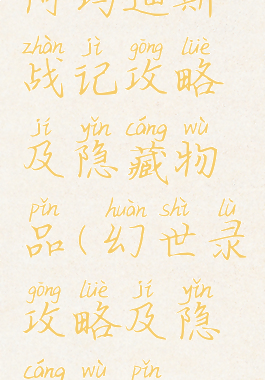 阿玛迪斯
zhàn jì gōng lüè
战记攻略
jí yǐn cáng wù
及隐藏物
pǐn huàn shì lù
品(幻世录
gōng lüè jí yǐn
攻略及隐
cáng wù pǐn